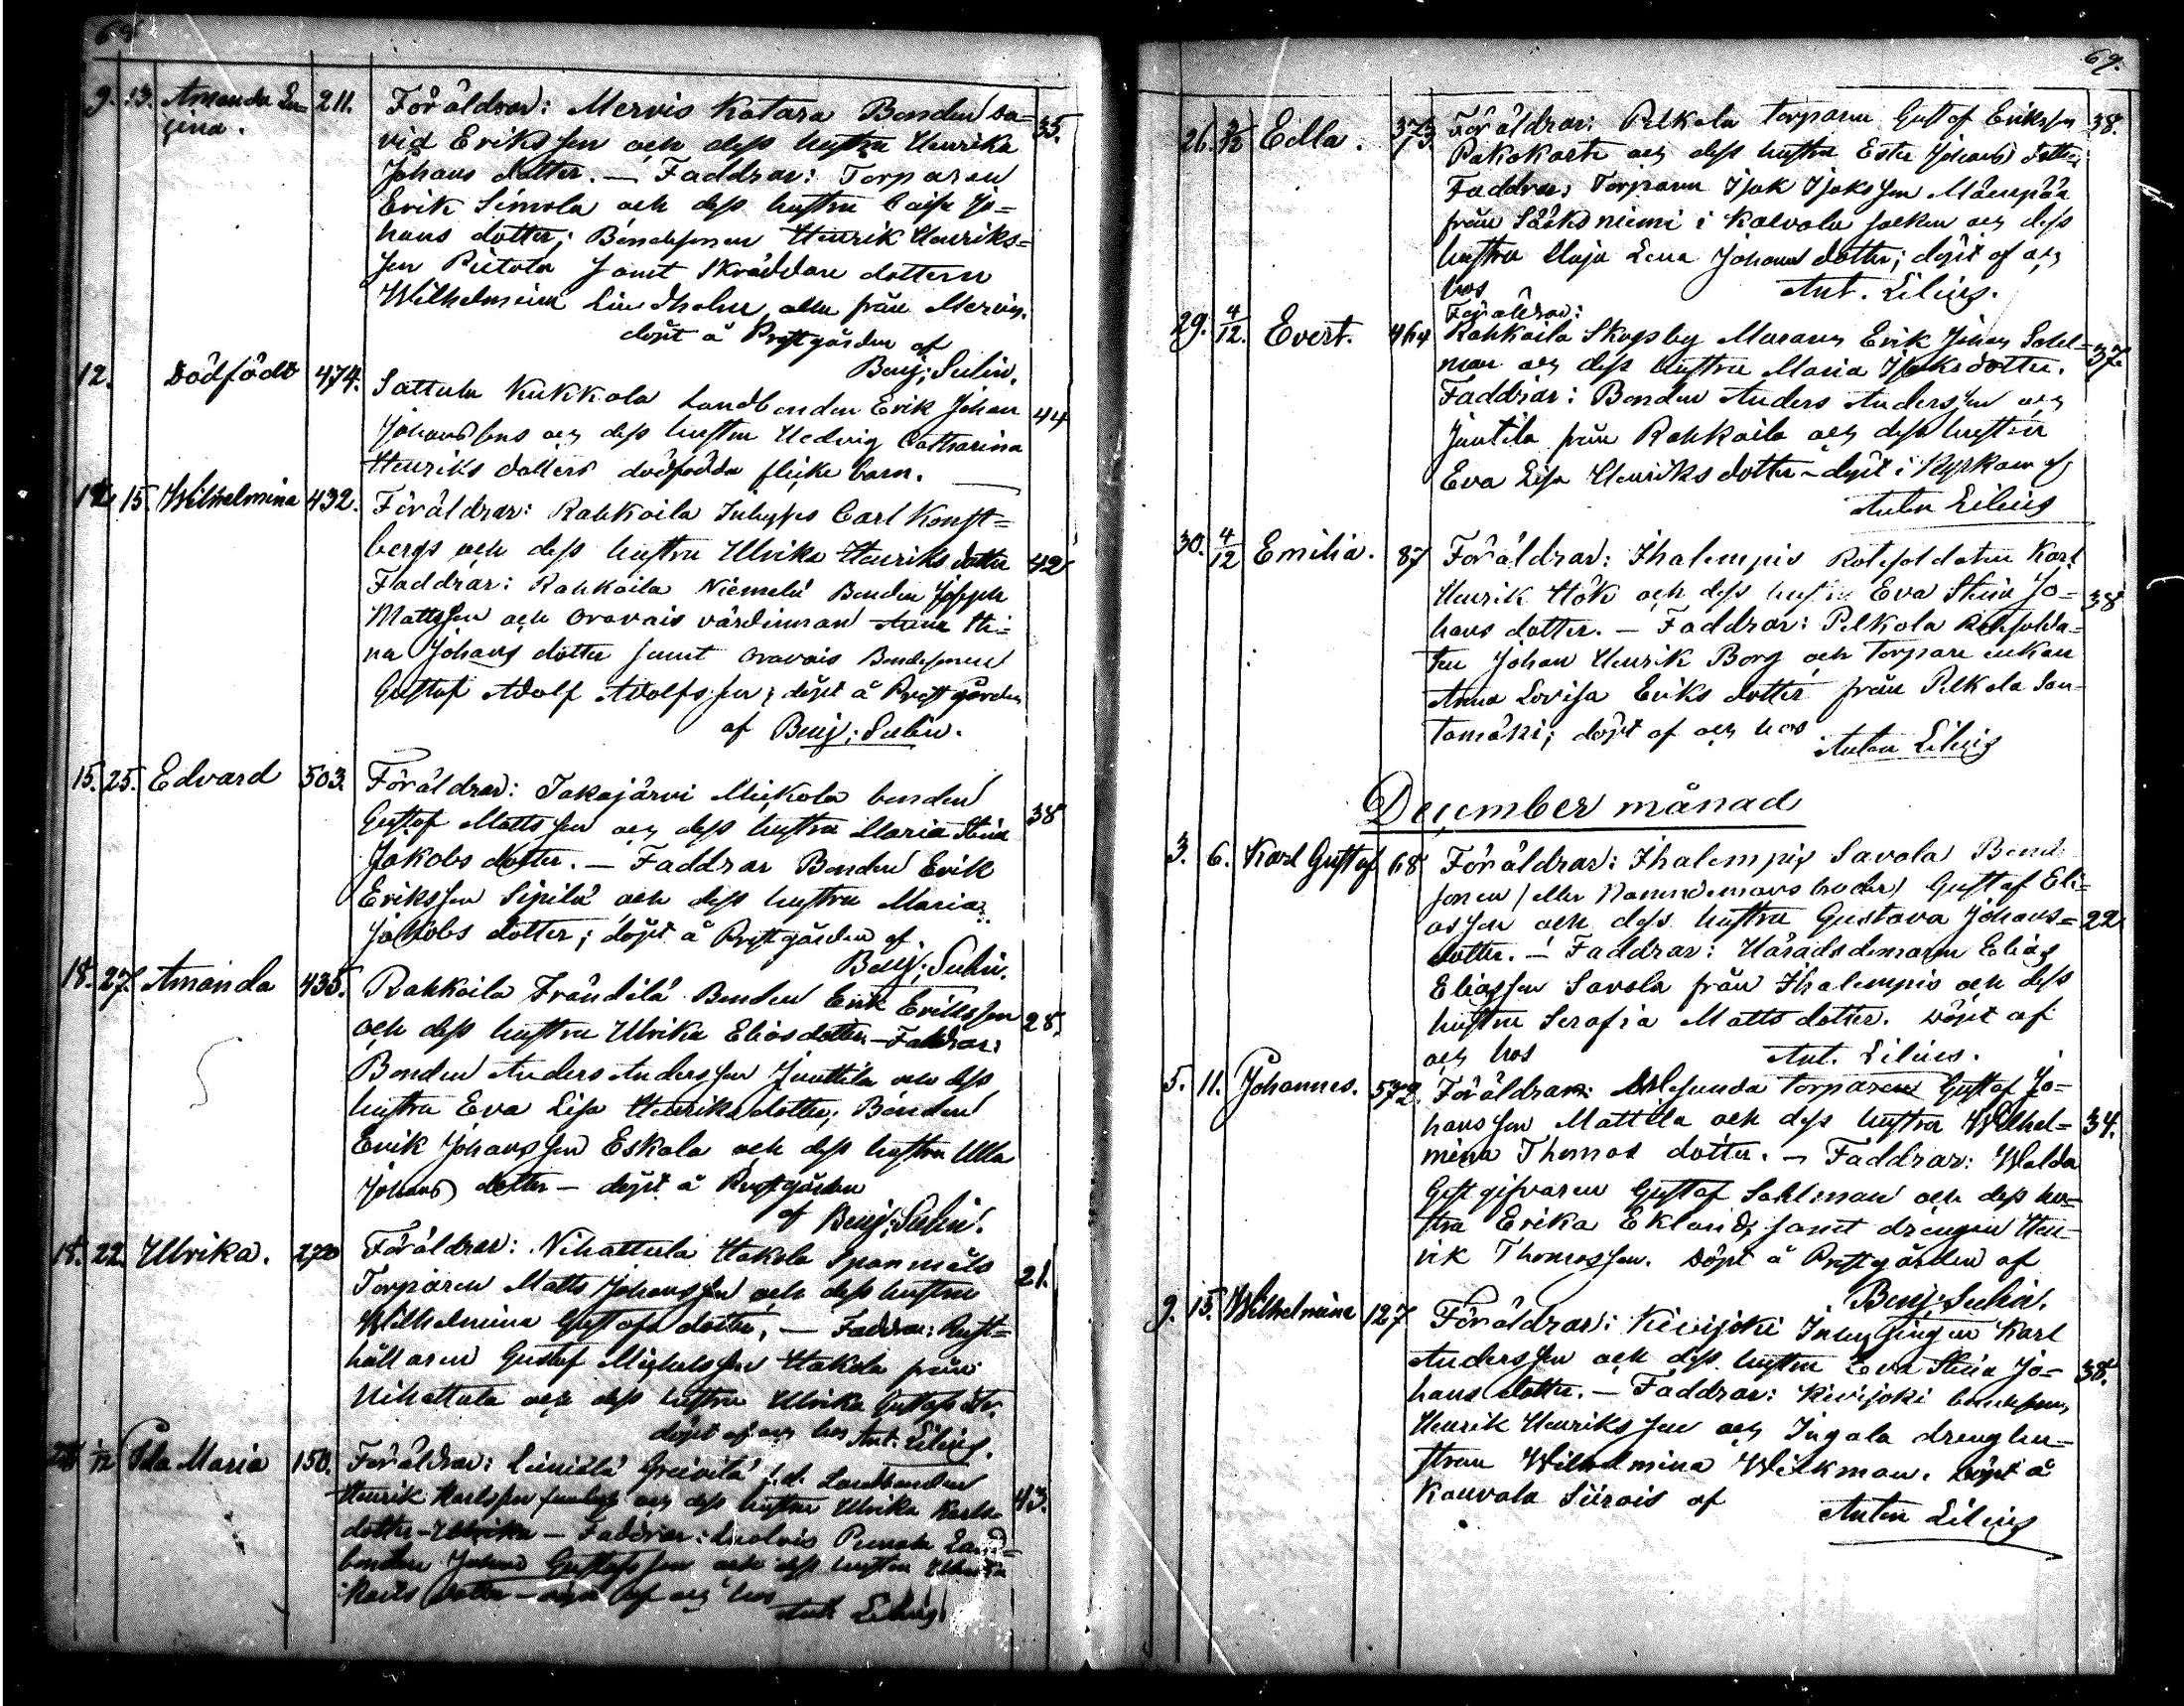 68
9. 13. Amanda Lu= 211. Föräldrar: Mervis Katara Bonden Da= 35.
gina. vid Eriksson och dess hustru Henrika
Johans dotter. — Faddrar: Torparen
Erik Simola och dess hustru Caisa Jo=
hans dotter; Bondesonen Henrik Henriks=
son Pietola samt Skräddare dottern
Wilhelmina Lindholm alla från Mervis.
döpt å Prestgården af
Benj: Sulin.
12. Dödfödt 474. Sattula Kukkola Landbonden Erik Johan 44
Johanssons och dess hustru Hedvig Catharina
Henriks dotters dödfödda flicke barn.
12. 15. Wilhelmina 432. Föräldrar: Rahkoila Inhyses Carl Konst=
bergs och dess hustru Ulrika Henriks dotter 42
Faddrar: Rahkoila Niemelä Bonden Joseph
Mattsson och Oravais värdinnan Anna Sti=
na Johans dotter samt Oravais Bondesonen
Gustaf Adolf Adolfsson; döpt å Prestgården
af Benj: Sulin.
15. 25. Edvard 503. Föräldrar: Takajärvi Mickola bonden
Gustaf Mattsson och dess hustru Maria Stina 38
Jakobs dotter. — Faddrar Bonden Erik
Eriksson Sipilä och dess hustru Maria
Jakobs dotter; döpt å Prestgården af
Benj: Sulin.
18. 27. Amanda 435. Rahkoila Frändilä Bonden Erik Eriksson 28.
och dess hustru Ulrika Eliasdotter — Faddrar:
Bonden Anders Andersson Junttila och dess
hustru Eva Lisa Henriksdotter; Bonden
Erik Johansson Eskola och dess hustru Ulla
Johans dotter — döpt å Prestgården
af Benj: Sulin.
18. 22. Ulrika. 220 Föräldrar: Nihattula Hakola Spanmåls
Torparen Matts Johansson och dess hustru 21.
Wilhelmina Gustafs dotter. — Faddrar: Rust=
hållaren Gustaf Michelsson Hakola från
Nihattula och dess hustru Ulrika Gustafs dr.
döpt af och hos Ant: Lilius.
28 1/12 Ida Maria 150. Föräldrar: Greivilä f.d. Landbonden
Henrik Karlsson och dess hustru Ulrika Karls= 43.
dotter — Ulrika — Faddrar: Land=
bonden Johan Gustafsson och dess hustru
Karls dotter — döpt af och hos
Ant Lilius
69.
26. 3/12 Edla. 373 Föräldrar: Pelkola torparen Gustaf Eriksson 38.
och dess hustru Ester Johans dotter
Faddrar: Torparen Isak Isaksson Mäenpää
från Sääksniemi i Kalvola socken och dess
hustru Maja Lena Johans dotter; döpt af och
hos Ant. Lilius.
29. 4/12. Evert. 464 Föräldrar:
Rahkoila Skogsby Muraren Erik Johan Sahl= 37.
man och dess hustru Maria Isaksdotter.
Faddrar: Bonden Anders Andersson och
Juntila från Rahkoila och dess hustru
Eva Lisa Henriksdotter — döpt i Kyrkan af
Anton Lilius
30. 4/12 Emilia. 87 Föräldrar: Ihalempis Rotesoldaten Karl
Henrik Hök och dess hustru Eva Stina Jo= 38
hans dotter. — Faddrar: Pelkola Rotesolda=
ten Johan Henrik Borg och Torpare enkan
Anna Lovisa Eriks dotter från Pelkola San=
tamäki; döpt af och hos Anton Lilius
December månad
3. 6. Karl Gustaf 68 Föräldrar: Ihalempis Savola Bonde
sonen (eller Nämndemans broder) Gustaf Eli=
asson och dess hustru Gustava Johans= 22
dotter. — Faddrar: Häradsdomaren Elias
Eliasson Savola från Ihalempis och dess
hustru Serafia Matts dotter. Döpt af
och hos Ant. Lilius.
5. 11. Johannes. 572. Föräldrar: torparen Gustaf Jo=
hansson Mattila och dess hustru Wilhel= 34.
mina Thomas dotter. — Faddrar: Walda
Gestgifvaren Gustaf Sahlman och dess hu=
stru Erika Eklund; samt drengen Hen=
rik Thomasson. Döpt å Prestgården af
Benj: Sulin.
9. 15. Wilhelmina 127 Föräldrar: Kivijoki Inhysingen Karl
Andersson och dess hustru Eva Stina Jo= 38.
hans dotter. — Faddrar: Kivijoki bondeson
Henrik Henriksson och Ingala drenghu=
strun Wilhelmina Wilkman. Döpt å
Kauvola Siirois af Anton Lilius